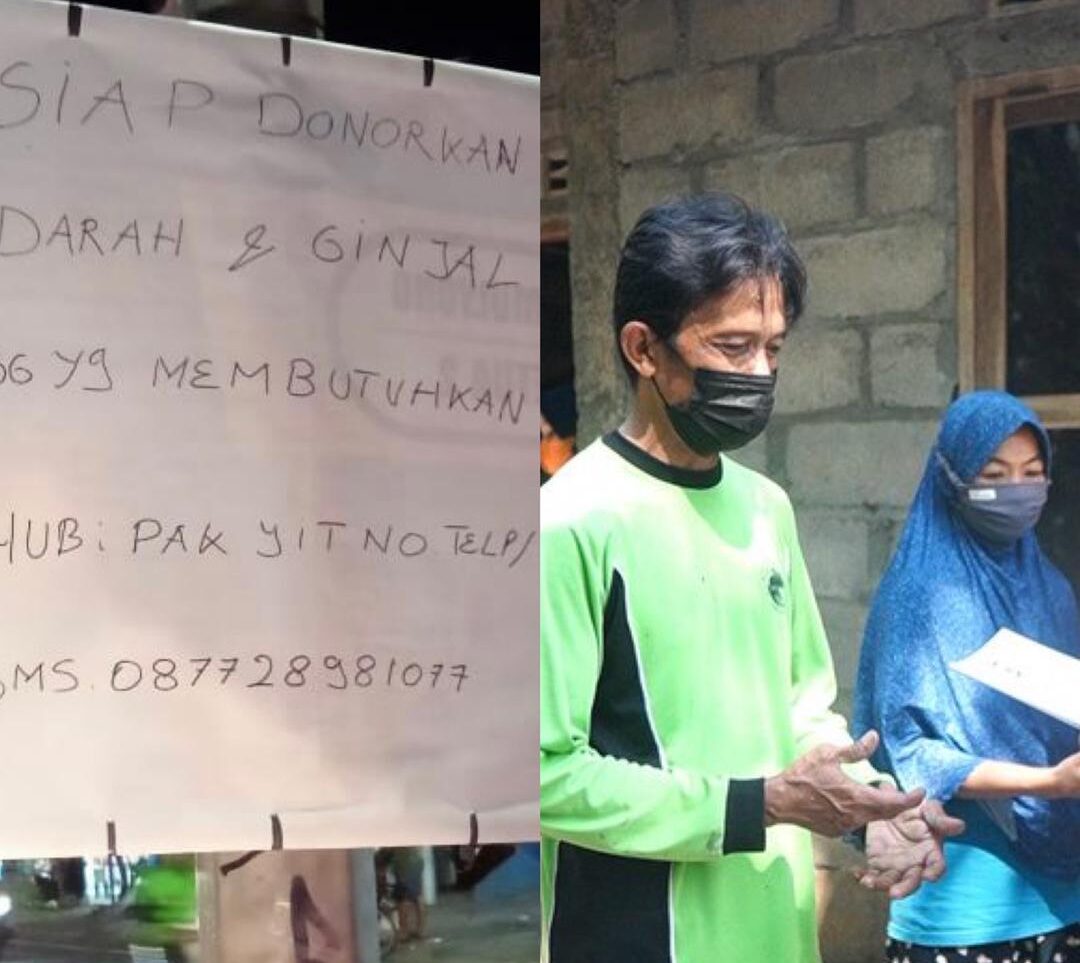 SiAP DONORKAN
DARAH & GiNJAL
YG MEMBUTUHKAN
HUB: PAK YITNO TELP/
SMS. 087728981077